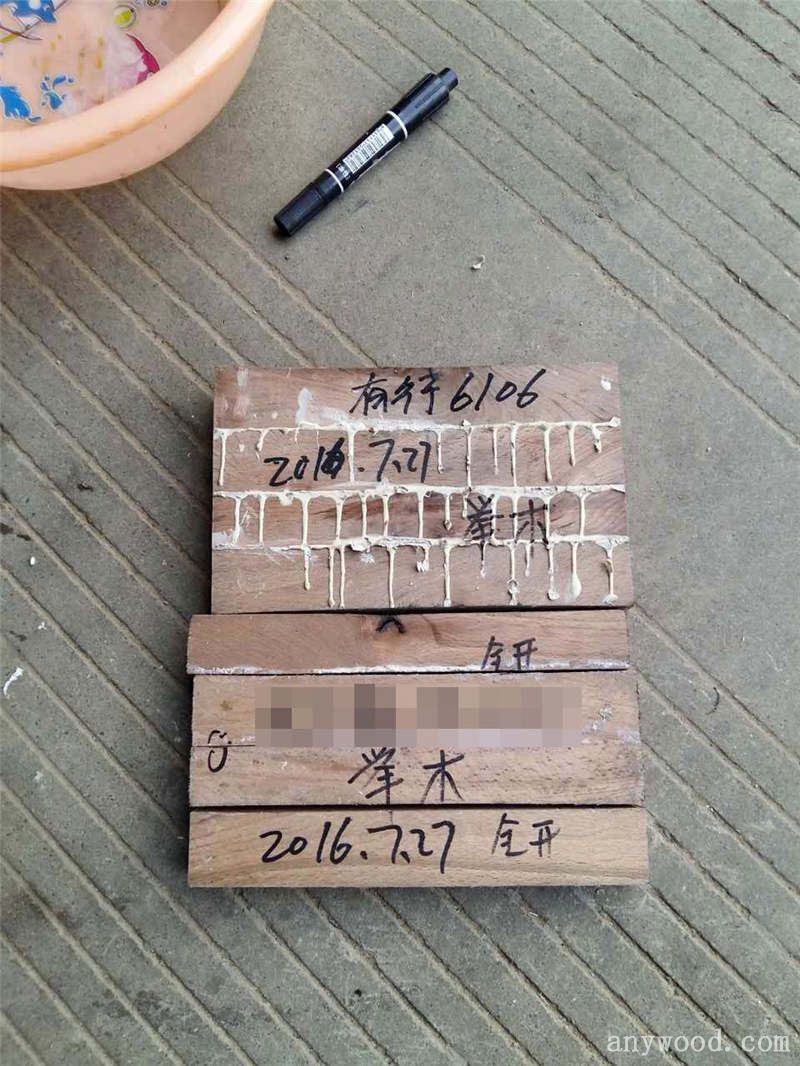 有行6106
2016.7.27
举木
全开
举木
2016.7.27 全开
anywood.com